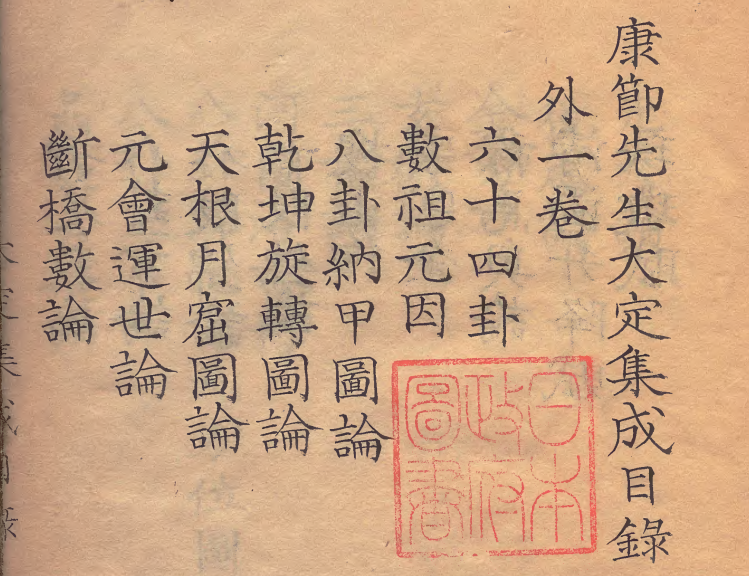 康節先生大定集成目錄
外一卷
六十四卦
數祖元因
八卦納甲圖論
乾坤旋轉圖論
天根月窟圖論
元會運世論
斷橋數論
日本
政府
圖書
大定集成目錄